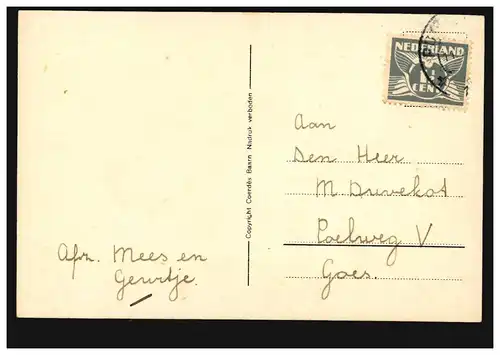 NEDERLAND
1½
CENT
Aan
Den Heer
M Duvekot
Poelweg V
Goes.
Afz. Mees en
Gerritje.
Copyright Coerdès Baarn Nadruk verboden